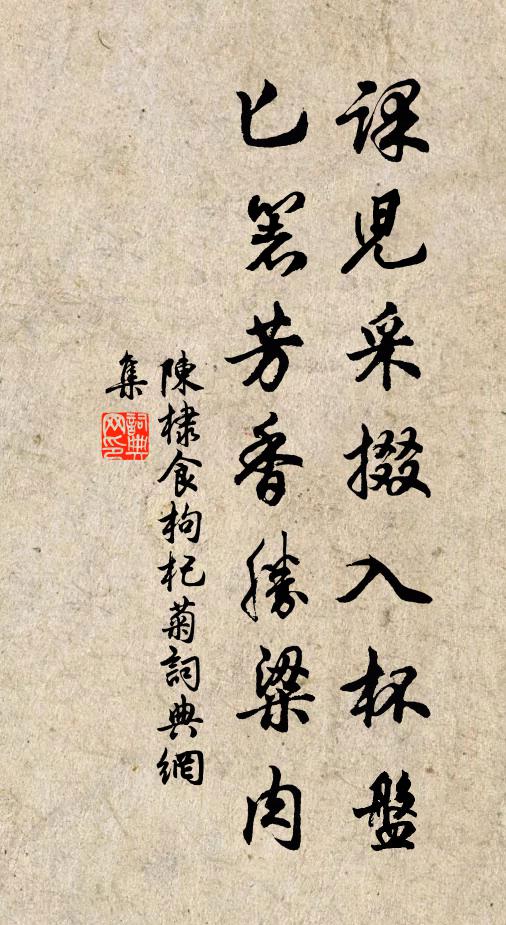 課兒采掇入杯盤
匕箸芳香勝粱肉
陳棣食枸杞菊詞典網
集
詞典網印